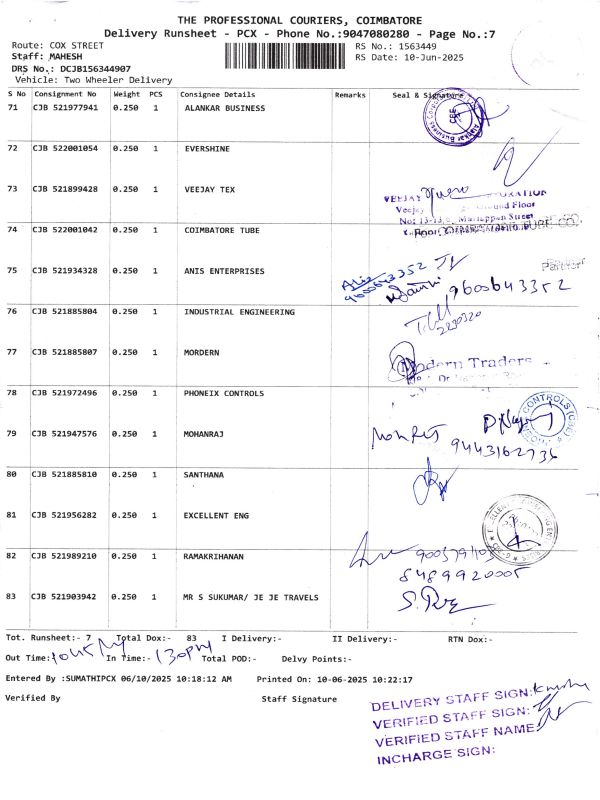 THE PROFESSIONAL COURIERS, COIMBATORE
Delivery Runsheet - PCX - Phone No.:9047080280 - Page No.:7
Route: COX STREET RS No.: 1563449
Staff: MAHESH RS Date: 10-Jun-2025
DRS No.: DCJB156344907
Vehicle: Two Wheeler Delivery
S No Consignment No Weight PCS Consignee Details Remarks Seal & Signature
71 CJB 521977941 0.250 1 ALANKAR BUSINESS
72 CJB 522001054 0.250 1 EVERSHINE
73 CJB 521899428 0.250 1 VEEJAY TEX
VEEJAY
Veejay Ground Floor
No: 13-13, Mariappan Street
74 CJB 522001042 0.250 1 COIMBATORE TUBE
Partner
75 CJB 521934328 0.250 1 ANIS ENTERPRISES
9600643352
9600643352
76 CJB 521885804 0.250 1 INDUSTRIAL ENGINEERING
77 CJB 521885807 0.250 1 MORDERN
Modern Traders
78 CJB 521972496 0.250 1 PHONEIX CONTROLS
CONTROLS
79 CJB 521947576 0.250 1 MOHANRAJ
9443162735
80 CJB 521885810 0.250 1 SANTHANA
81 CJB 521956282 0.250 1 EXCELLENT ENG
82 CJB 521989210 0.250 1 RAMAKRIHANAN
8489920005
83 CJB 521903942 0.250 1 MR S SUKUMAR/ JE JE TRAVELS
Tot. Runsheet:- 7 Total Dox:- 83 I Delivery:- II Delivery:- RTN Dox:-
Out Time: In Time:- 130pm Total POD:- Delvy Points:-
Entered By :SUMATHIPCX 06/10/2025 10:18:12 AM Printed On: 10-06-2025 10:22:17
Verified By Staff Signature
DELIVERY STAFF SIGN:
VERIFIED STAFF SIGN:
VERIFIED STAFF NAME:
INCHARGE SIGN: